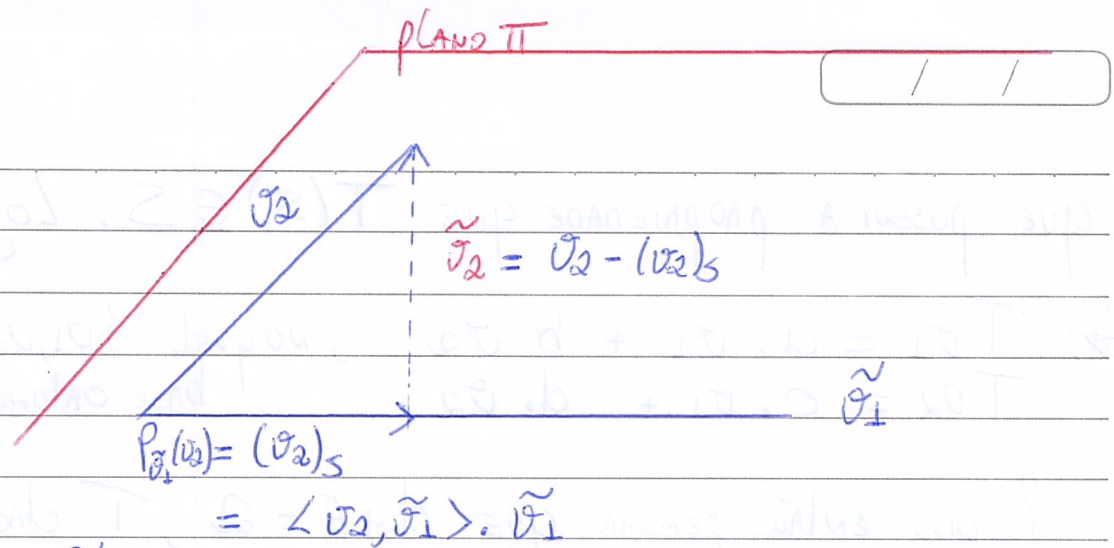 PLANO π
/ /
v2
ṽ2 = v2 - (v2)s
ṽ1
Pṽ1(v2) = (v2)s
= <v2, ṽ1>. ṽ1